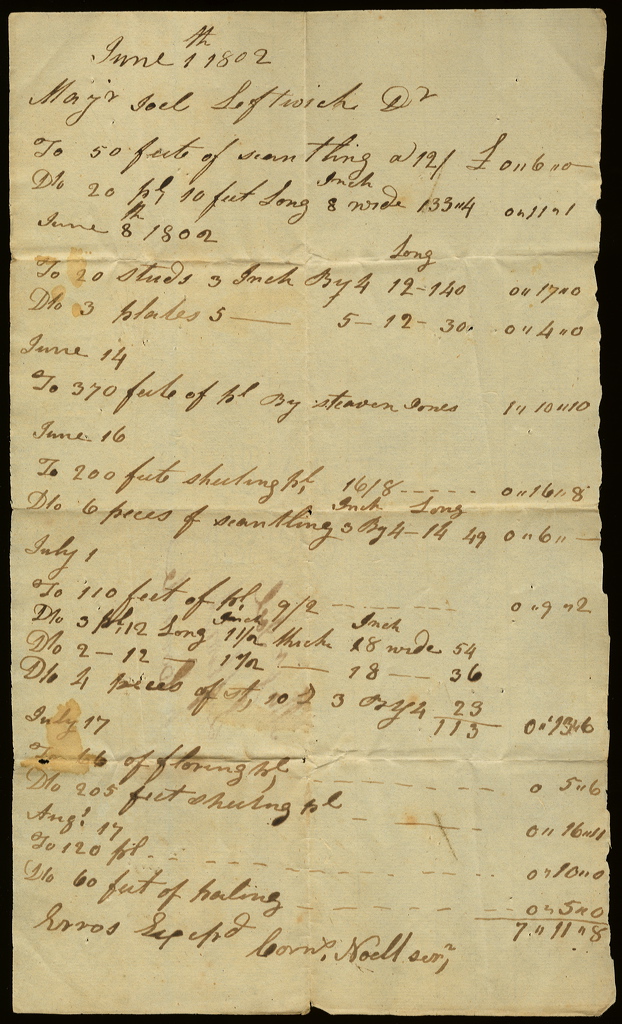 June 1th 1802
Majr Joel Leftwich Dr
To 50 feete of scantling a 12/ £ 0"6"0
Inch
Dto 20 pl, 10 feet Long 8 wide 133"4 0"11"1
June 8th 1802
Long
To 20 studs 3 Inch By 4 12-140 0"17"0
Dto 3 plates 5 — 5-12-30. 0"4"0
June 14
To 370 feete of pl By steaven Jones 1"10"10
June 16
To 200 feete sheeting pl, 16/8 - - - - - 0"16"8
Inch Long
Dto 6 peces of scantling 3 By 4-14 49 0"6"—
July 1
To 110 feet of pl, 9/2 - - - - - - 0"9"2
Inch Inch
Dto 3 pl, 12 Long 1 1/2 thick 18 wide 54
Dto 2 - 12 — 1 1/2 — 18 — 36
Dto 4 peces of 10 3 By 4 23
113 0"13"6
July 17
To 66 of floring pl - - - - - - 0 5"6
Dto 205 feet sheeting pl - - - - - 0"16"11
Augt 17
To 120 pl - - - - - - 0"10"0
Dto 60 feet of paling - - - - - 0"5"0
7"11"8
Erros Excepd
Corns. Noell senr,